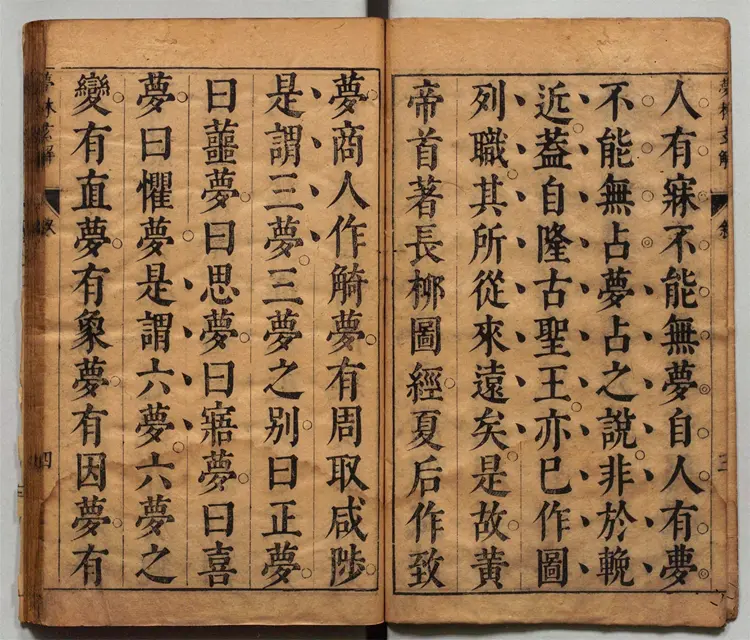 夢林玄解
三
人有寐不能無夢自人有夢
不能無占夢占之說非於輓
近葢自隆古聖王亦巳作圖
列職其所從來遠矣是故黃
帝首著長桺圖經夏后作致
夢商人作觭夢有周取咸陟
是謂三夢三夢之别曰正夢
曰蘁夢曰思夢曰寤夢曰喜
夢曰懼夢是謂六夢六夢之
變有直夢有象夢有因夢有
夢林玄解
四